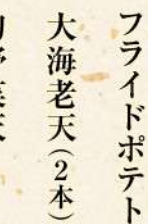 フライドポテト
大海老天(2本)